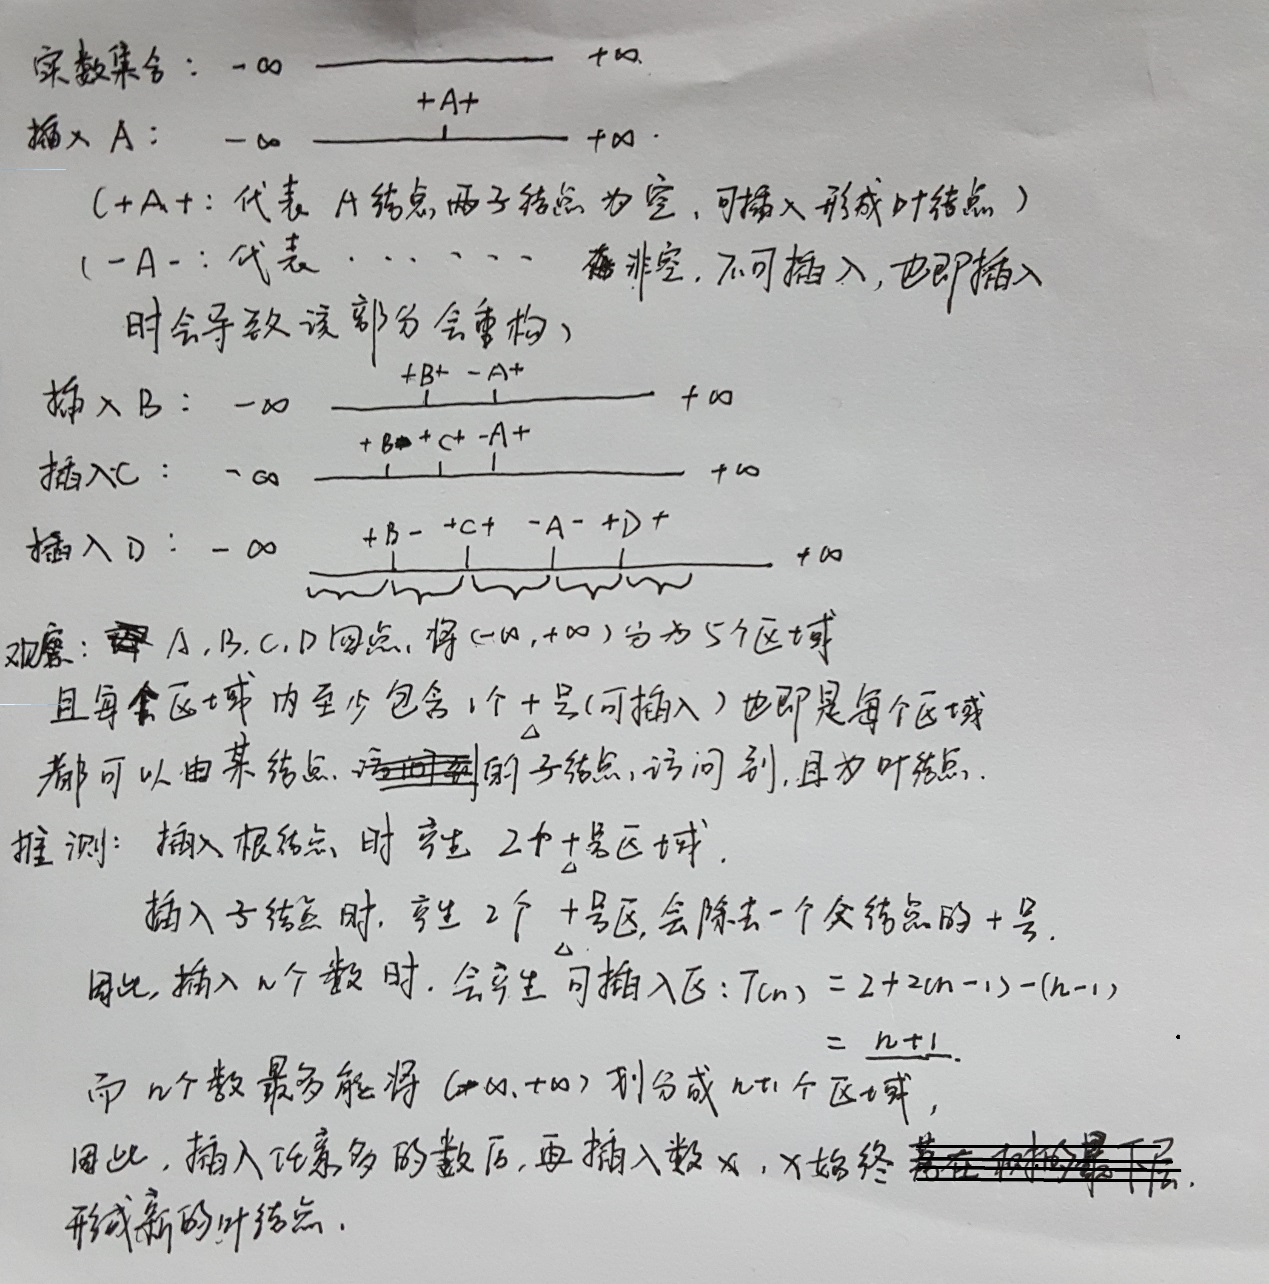 实数集合: -∞ +∞.
+A+
插入 A: -∞ +∞.
(+A+: 代表 A结点两子结点为空,可插入形成叶结点)
(-A-: 代表 ······ 非空,不可插入,也即插入
时会导致该部分会重构)
+B+ -A+
插入 B: -∞ +∞
+B +C+ -A+
插入C: -∞ +∞
+B- +C+ -A- +D+
插入D: -∞ +∞
观察: A,B,C,D四点,将(-∞,+∞)分为5个区域
且每个区域内至少包含1个+号(可插入)也即是每个区域
都可以由某结点的子结点,访问到,且为叶结点.
推测: 插入根结点时产生 2个+号区域.
插入子结点时,产生2个+号区,会除去一个父结点的+号.
因此,插入n个数时,会产生可插入区: T(n) = 2+2(n-1)-(n-1)
= n+1.
而n个数最多能将(-∞,+∞)划分成n+1个区域,
因此,插入任意多的数后,再插入数x,x始终
形成新的叶结点.